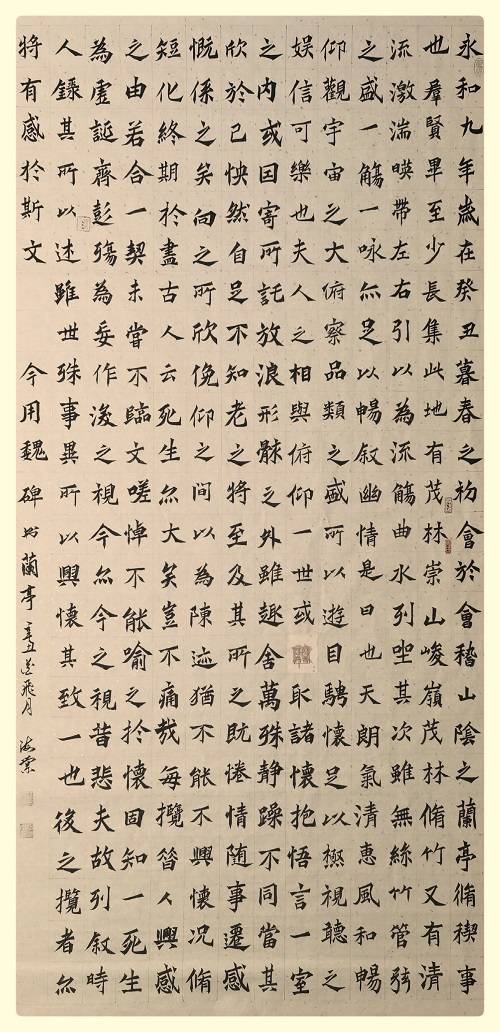 永和九年歲在癸丑暮春之初會於會稽山陰之蘭亭脩禊事
也羣賢畢至少長集此地有茂林崇山峻嶺茂林脩竹又有清
流激湍暎帶左右引以為流觴曲水列坐其次雖無絲竹管弦
之盛一觴一咏亦足以暢叙幽情是日也天朗氣清惠風和暢
仰觀宇宙之大俯察品類之盛所以遊目騁懷足以極視聽之
娱信可樂也夫人之相與俯仰一世或取諸懷抱悟言一室
之内或因寄所託放浪形骸之外雖趣舍萬殊静躁不同當其
欣於己怏然自足不知老之將至及其所之既惓情随事遷感
慨係之矣向之所欣俛仰之間以為陳迹猶不能不興懷況脩
短化終期於盡古人云死生亦大矣豈不痛哉每攬昝人興感
之由若合一契未嘗不臨文嗟悼不能喻之於懷固知一死生
為虛誕齊彭殤為妄作後之視今亦今之視昔悲夫故列叙時
人錄其所以述雖世殊事異所以興懷其致一也後之攬者亦
將有感於斯文 今用魏碑书蘭亭 辛丑 月